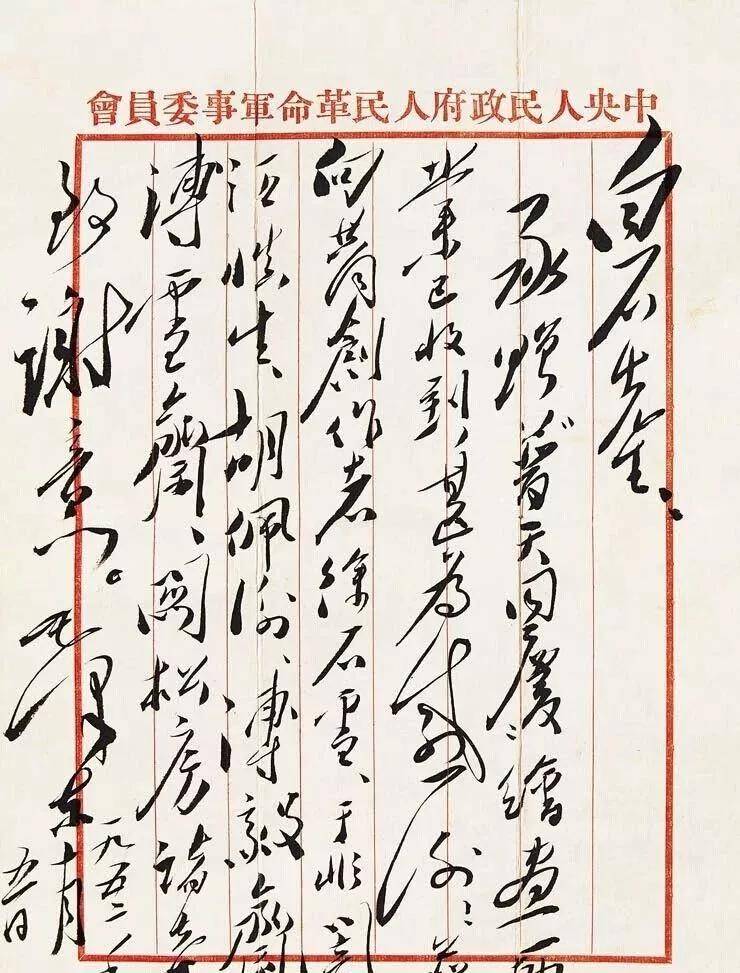 中央人民政府人民革命軍事委員會
白石先生：
承贈普天同慶繪畫一
業已收到，甚為感謝！
向共同創作者徐石雪、于非
汪慎生、胡佩衡、溥毅齋
溥雪齋、關松房諸先
致謝意。毛澤东
一九五二年
十月
五日